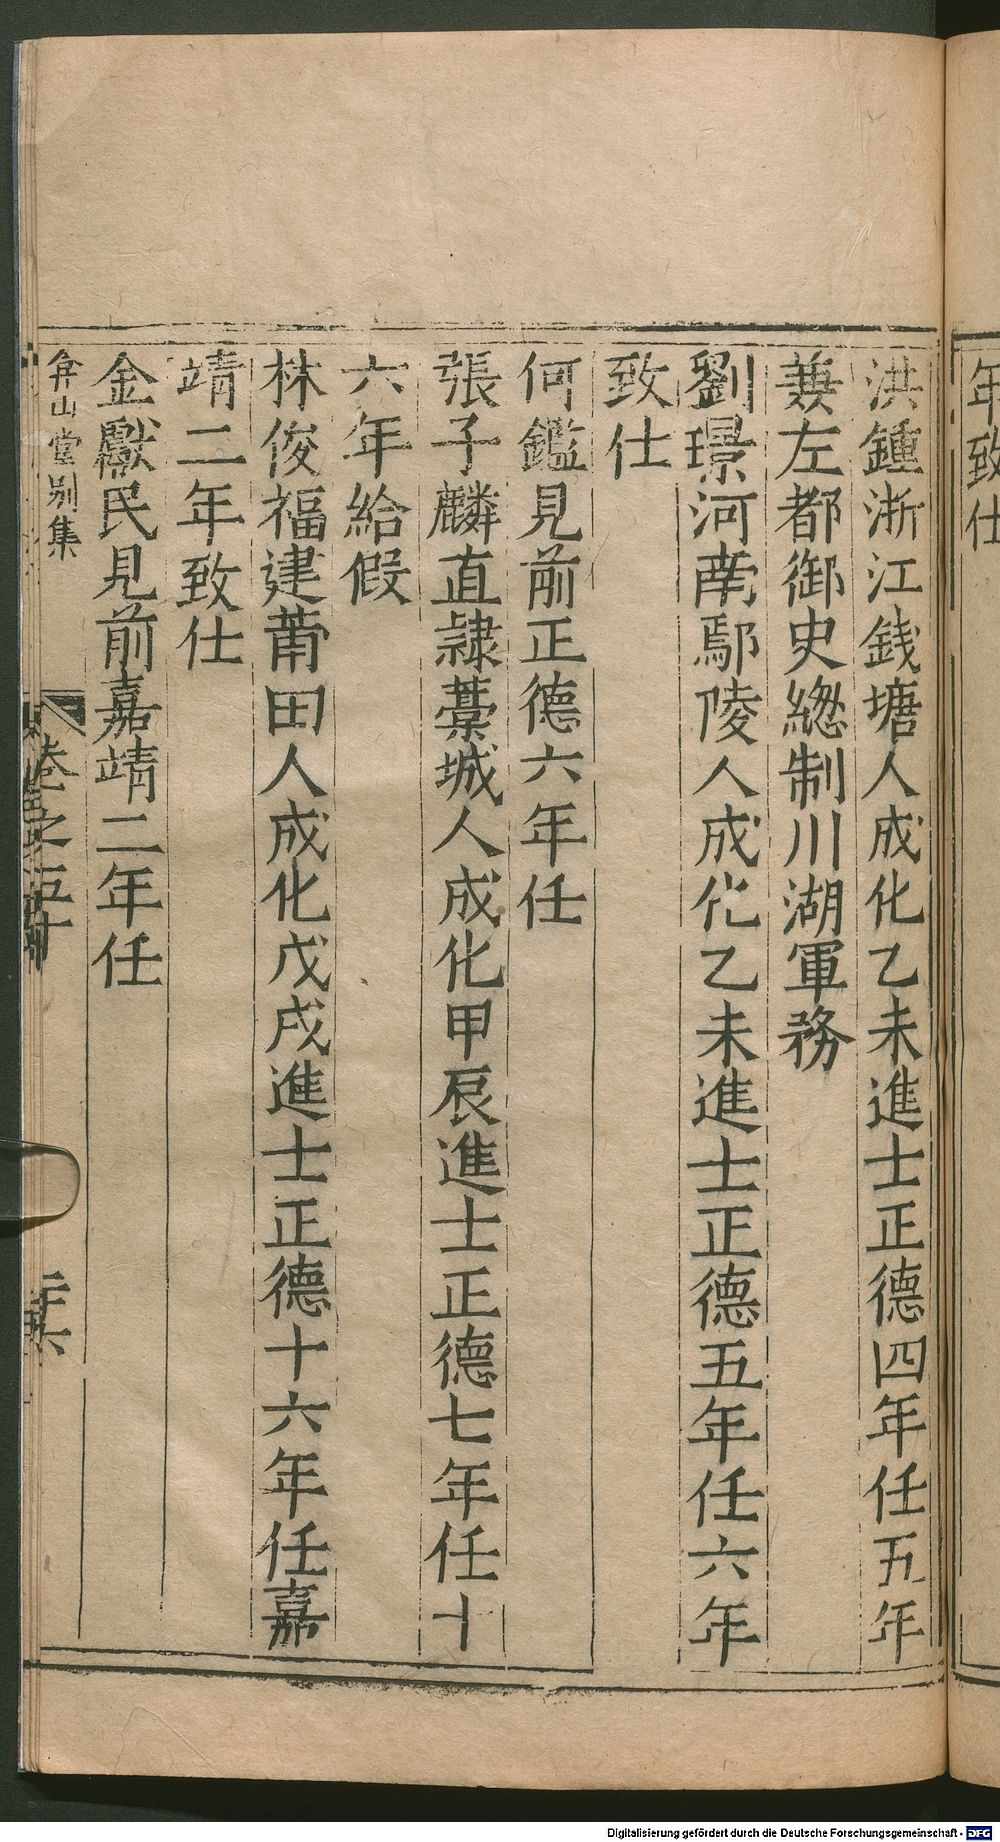 年致仕
洪鍾浙江錢塘人成化乙未進士正德四年任五年
兼左都御史總制川湖軍務
劉璟河南鄢陵人成化乙未進士正德五年任六年
致仕
何鑑見前正德六年任
張子麟直隸藁城人成化甲辰進士正德七年任十
六年給假
林俊福建莆田人成化戊戌進士正德十六年任嘉
靖二年致仕
金獻民見前嘉靖二年任
弇山堂别集
卷之五十
二十六
Digitalisierung gefördert durch die Deutsche Forschungsgemeinschaft - DFG